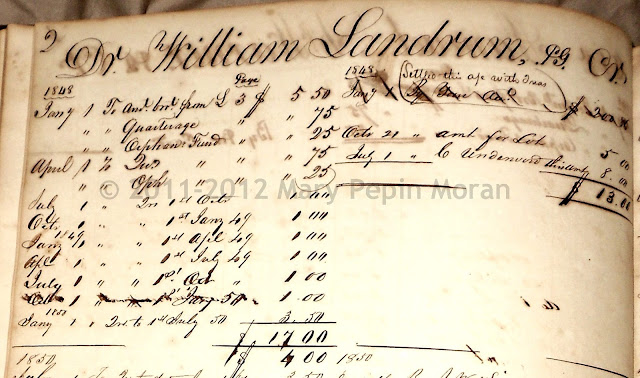 2
Dr. William Landrum, P.G. Cr.
Page
1848
Jany 1 To amt. brt. from L 3 $ 5 50
" " Quarterage " " 75
" " Orphans Fund " " 25
April 1 To Qrs " " 75
" " Oph " " 25
July 1 " Qr 1st Octr 1.00
Oct 1 " " 1st Jany 49 1.00
1849
Jany 1 " " 1st Apl 49 1.00
Apl 1 " " 1st July 49 1.00
July 1 " " 1st Oct 1 00
Oct 1 " " 1st Jany 50 " 1.00
1850
Jany 1 " Qr to 1st July 50 3.50
$ 17 00
1850 $ 4 00
1848
Settled this a/c with Dues
Jany 1 By
Octr 21 " amt for Lot 5 00
July 1 " C Underwood 8.00
$ 13.00
1850
© 2011-2012 Mary Pepin Moran